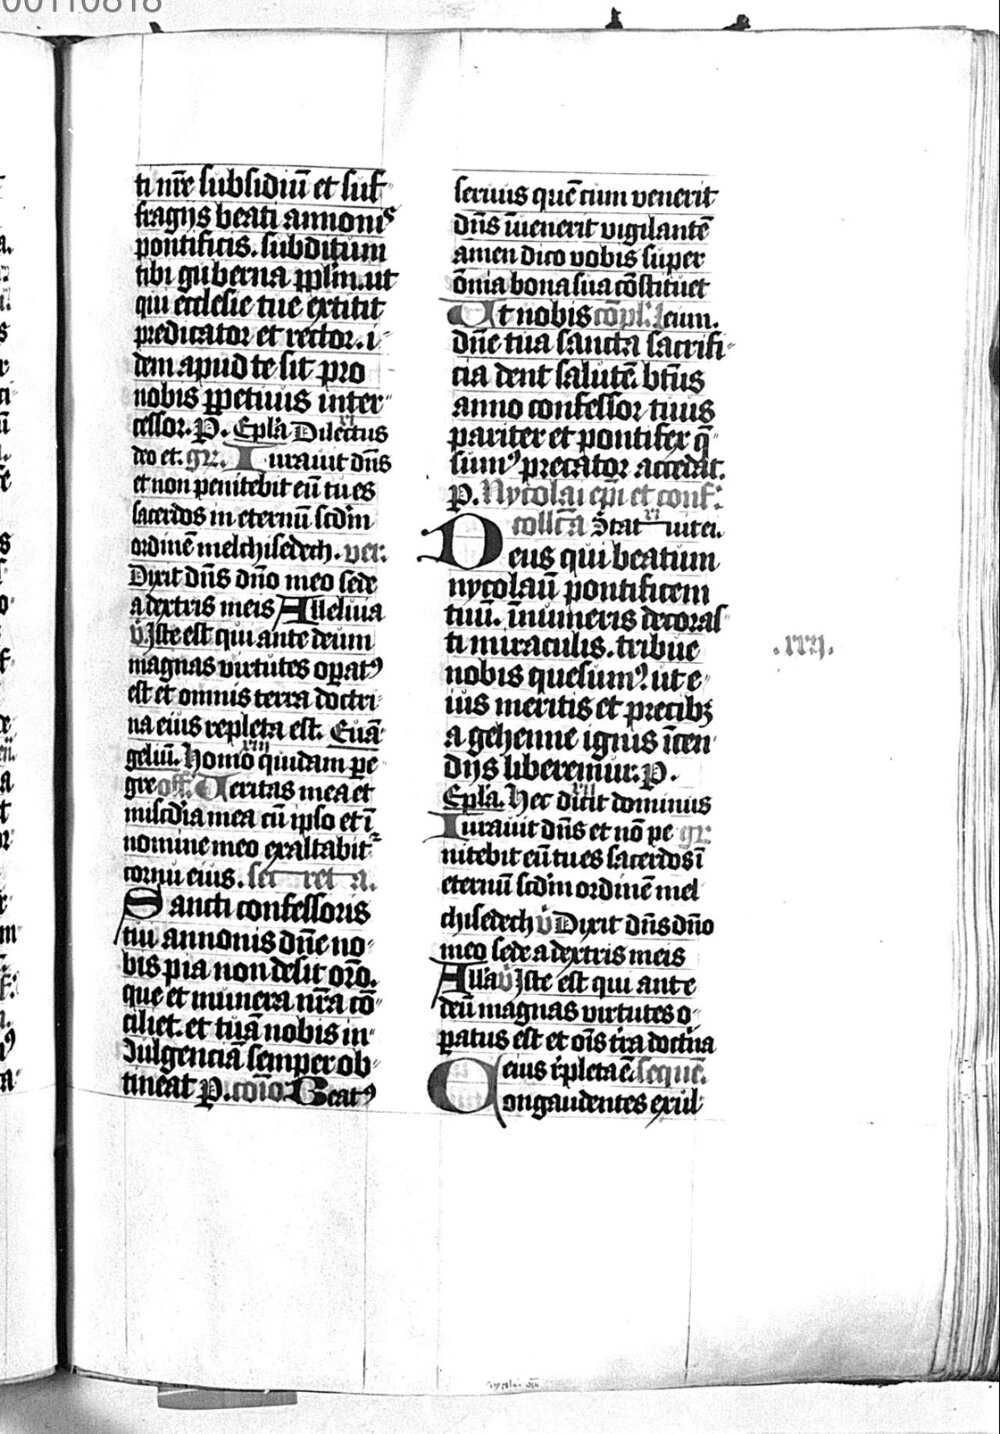 00110818
ti nr̄e subsidiū et suf-
fragijs beati annonis
pontificis. subditum
tibi guberna pplm̄. ut
qui ecclesie tue extitit
predicator et rector. i-
dem apud te sit pro
nobis ꝑpetuus inter-
cessor. P. Epl̄a Dilectus
deo et. gr̄. Iurauit dn̄s
et non penitebit eū tu es
sacerdos in eternū scdm̄
ordinē melchisedech. ver.
Dixit dn̄s dn̄o meo sede
a dextris meis Alleluia
v̄ Iste est qui ante deum
magnas virtutes oꝑatꝰ
est et omnis terra doctri-
na eius repleta est. Euā-
geliū. Homo quidam pe
gre off. Ueritas mea et
miscd̄ia mea cū ipso et ī
nomine meo exaltabitᷣ
cornu eius. secreta.
Sancti confessoris
tui annonis dn̄e no-
bis pia non desit orō.
que et munera nr̄a cō-
ciliet. et tuā nobis in-
dulgenciā semper ob-
tineat P. cōio. Beatꝰ
seruus quē cum venerit
dn̄s īuenerit vigilantē
amen dico vobis super
ōnia bona sua cōstituet
Ut nobis cōpl. Ieiun.
dn̄e tua sancta sacrifi-
cia dent salutē. bt̄us
anno confessor tuus
pariter et pontifex q̄-
sumꝰ precator accedat.
P. Nycolai ep̄i et conf.
collc̄a Stat uitei.
Deus qui beatum
nycolaū pontificem
tuū. īnumeris decoras-
ti miraculis. tribue
nobis quesumꝰ. ut e-
ius meritis et precibꝫ
a gehenne ignis īcen-
dijs liberemur. P.
.xxxj.
Epl̄a. Hec dicit dominus
Iurauit dn̄s et nō pe gr̄.
nitebit eū tu es sacerdos ī
eternū scdm̄ ordinē mel
chisedech v̄ Dixit dn̄s dn̄o
meo sede a dextris meis
All'a v̄ Iste est qui ante
deū magnas virtutes o-
patus est et oīs tr̄a doctn̄a
eius rp̄leta ē. seque.
Congaudentes exul-